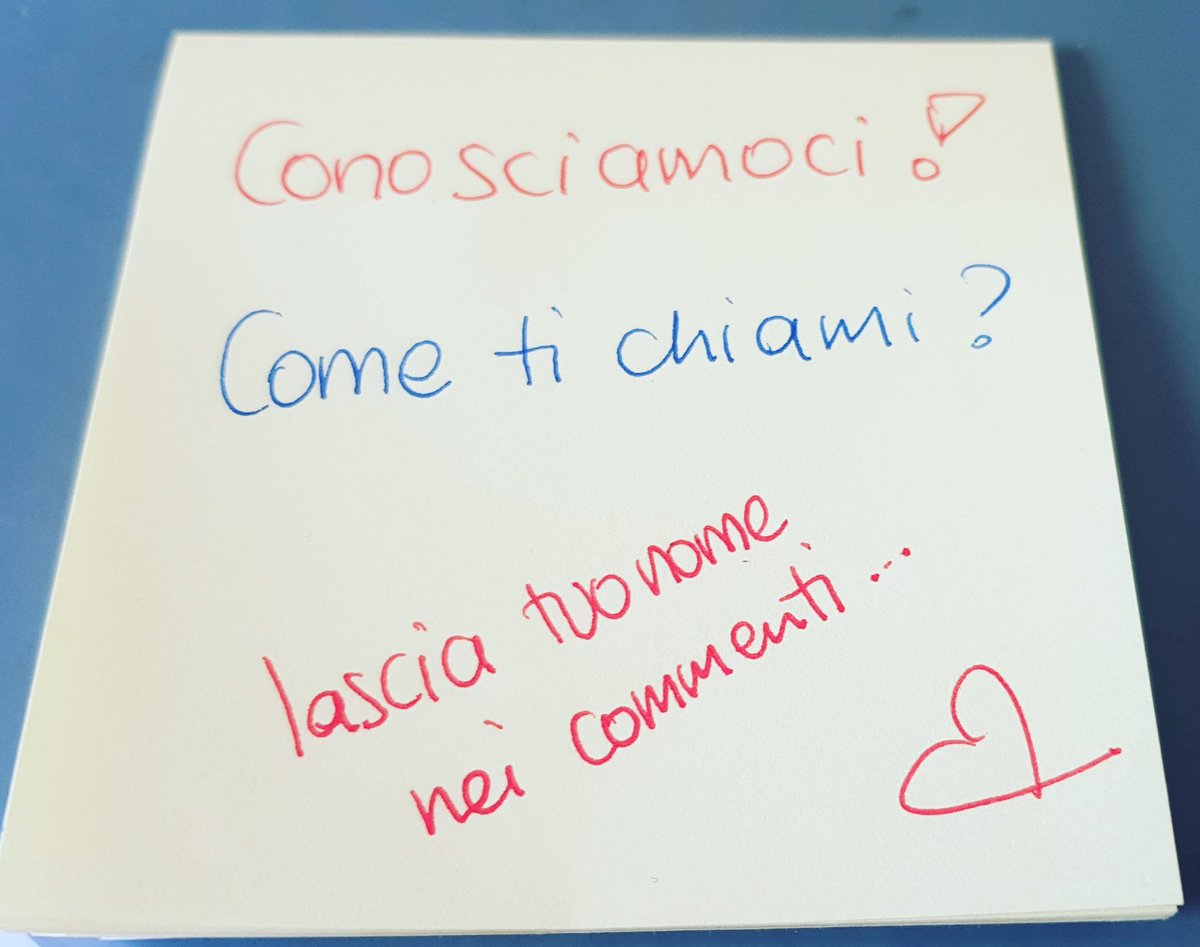 Conosciamoci!
Come ti chiami?
lascia tuo nome
nei commenti...